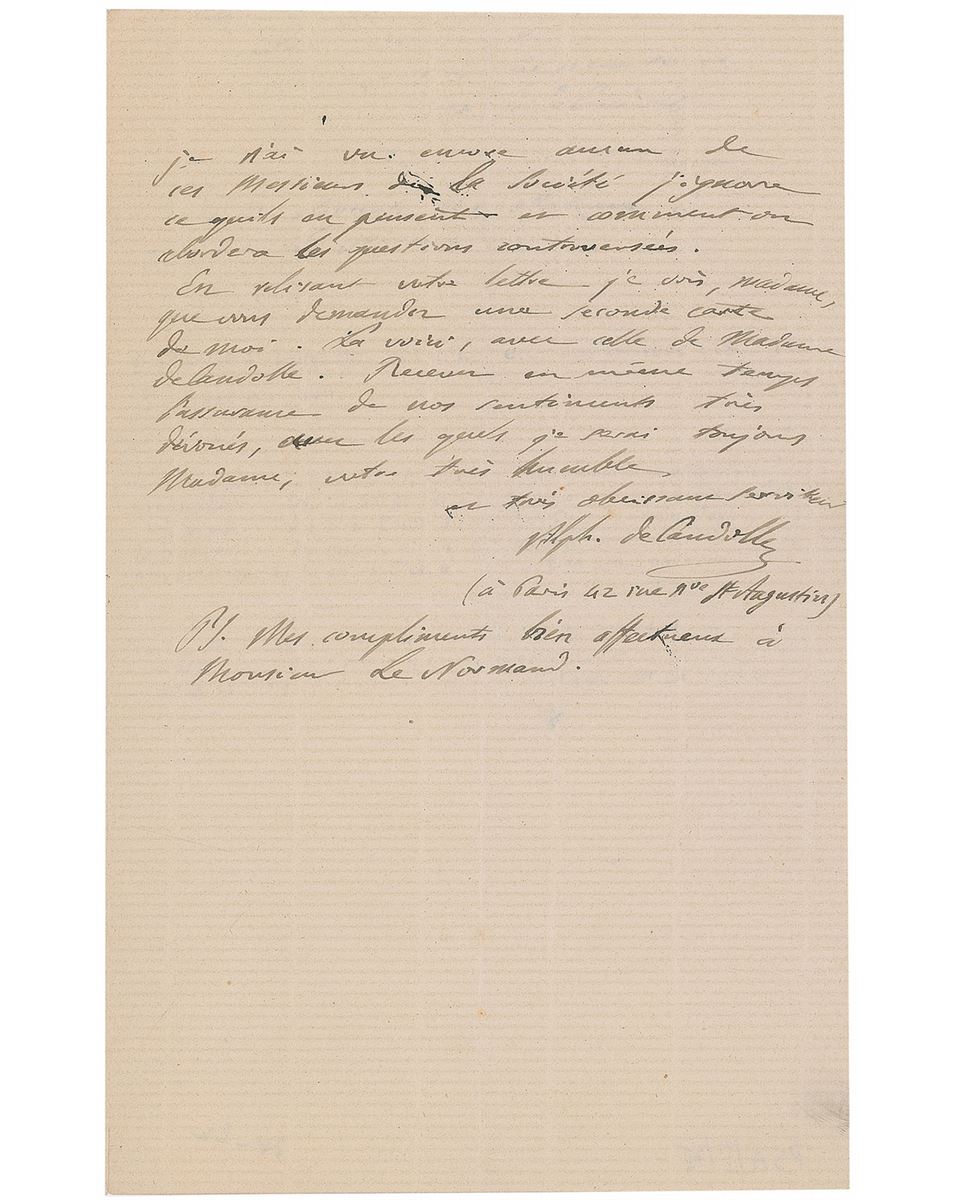 je n'ai vu encore aucun de
ces Messieurs de la Société j'ignore
ce qu'ils en pensent et comment on
abordera les questions controversées.
En relisant votre lettre je vois, madame,
que vous demandez une seconde carte
de moi. La voici, avec celle de Madame
deCandolle. Recevez en même temps
l'assurance de nos sentiments très
dévoués, avec les quels je serai toujours
Madame, votre très humble
et très obeissant serviteur
Alph. deCandolle
(à Paris 42 rue Nve St Augustin)
PS. Mes compliments bien affectueux à
Monsieur Le Normand.